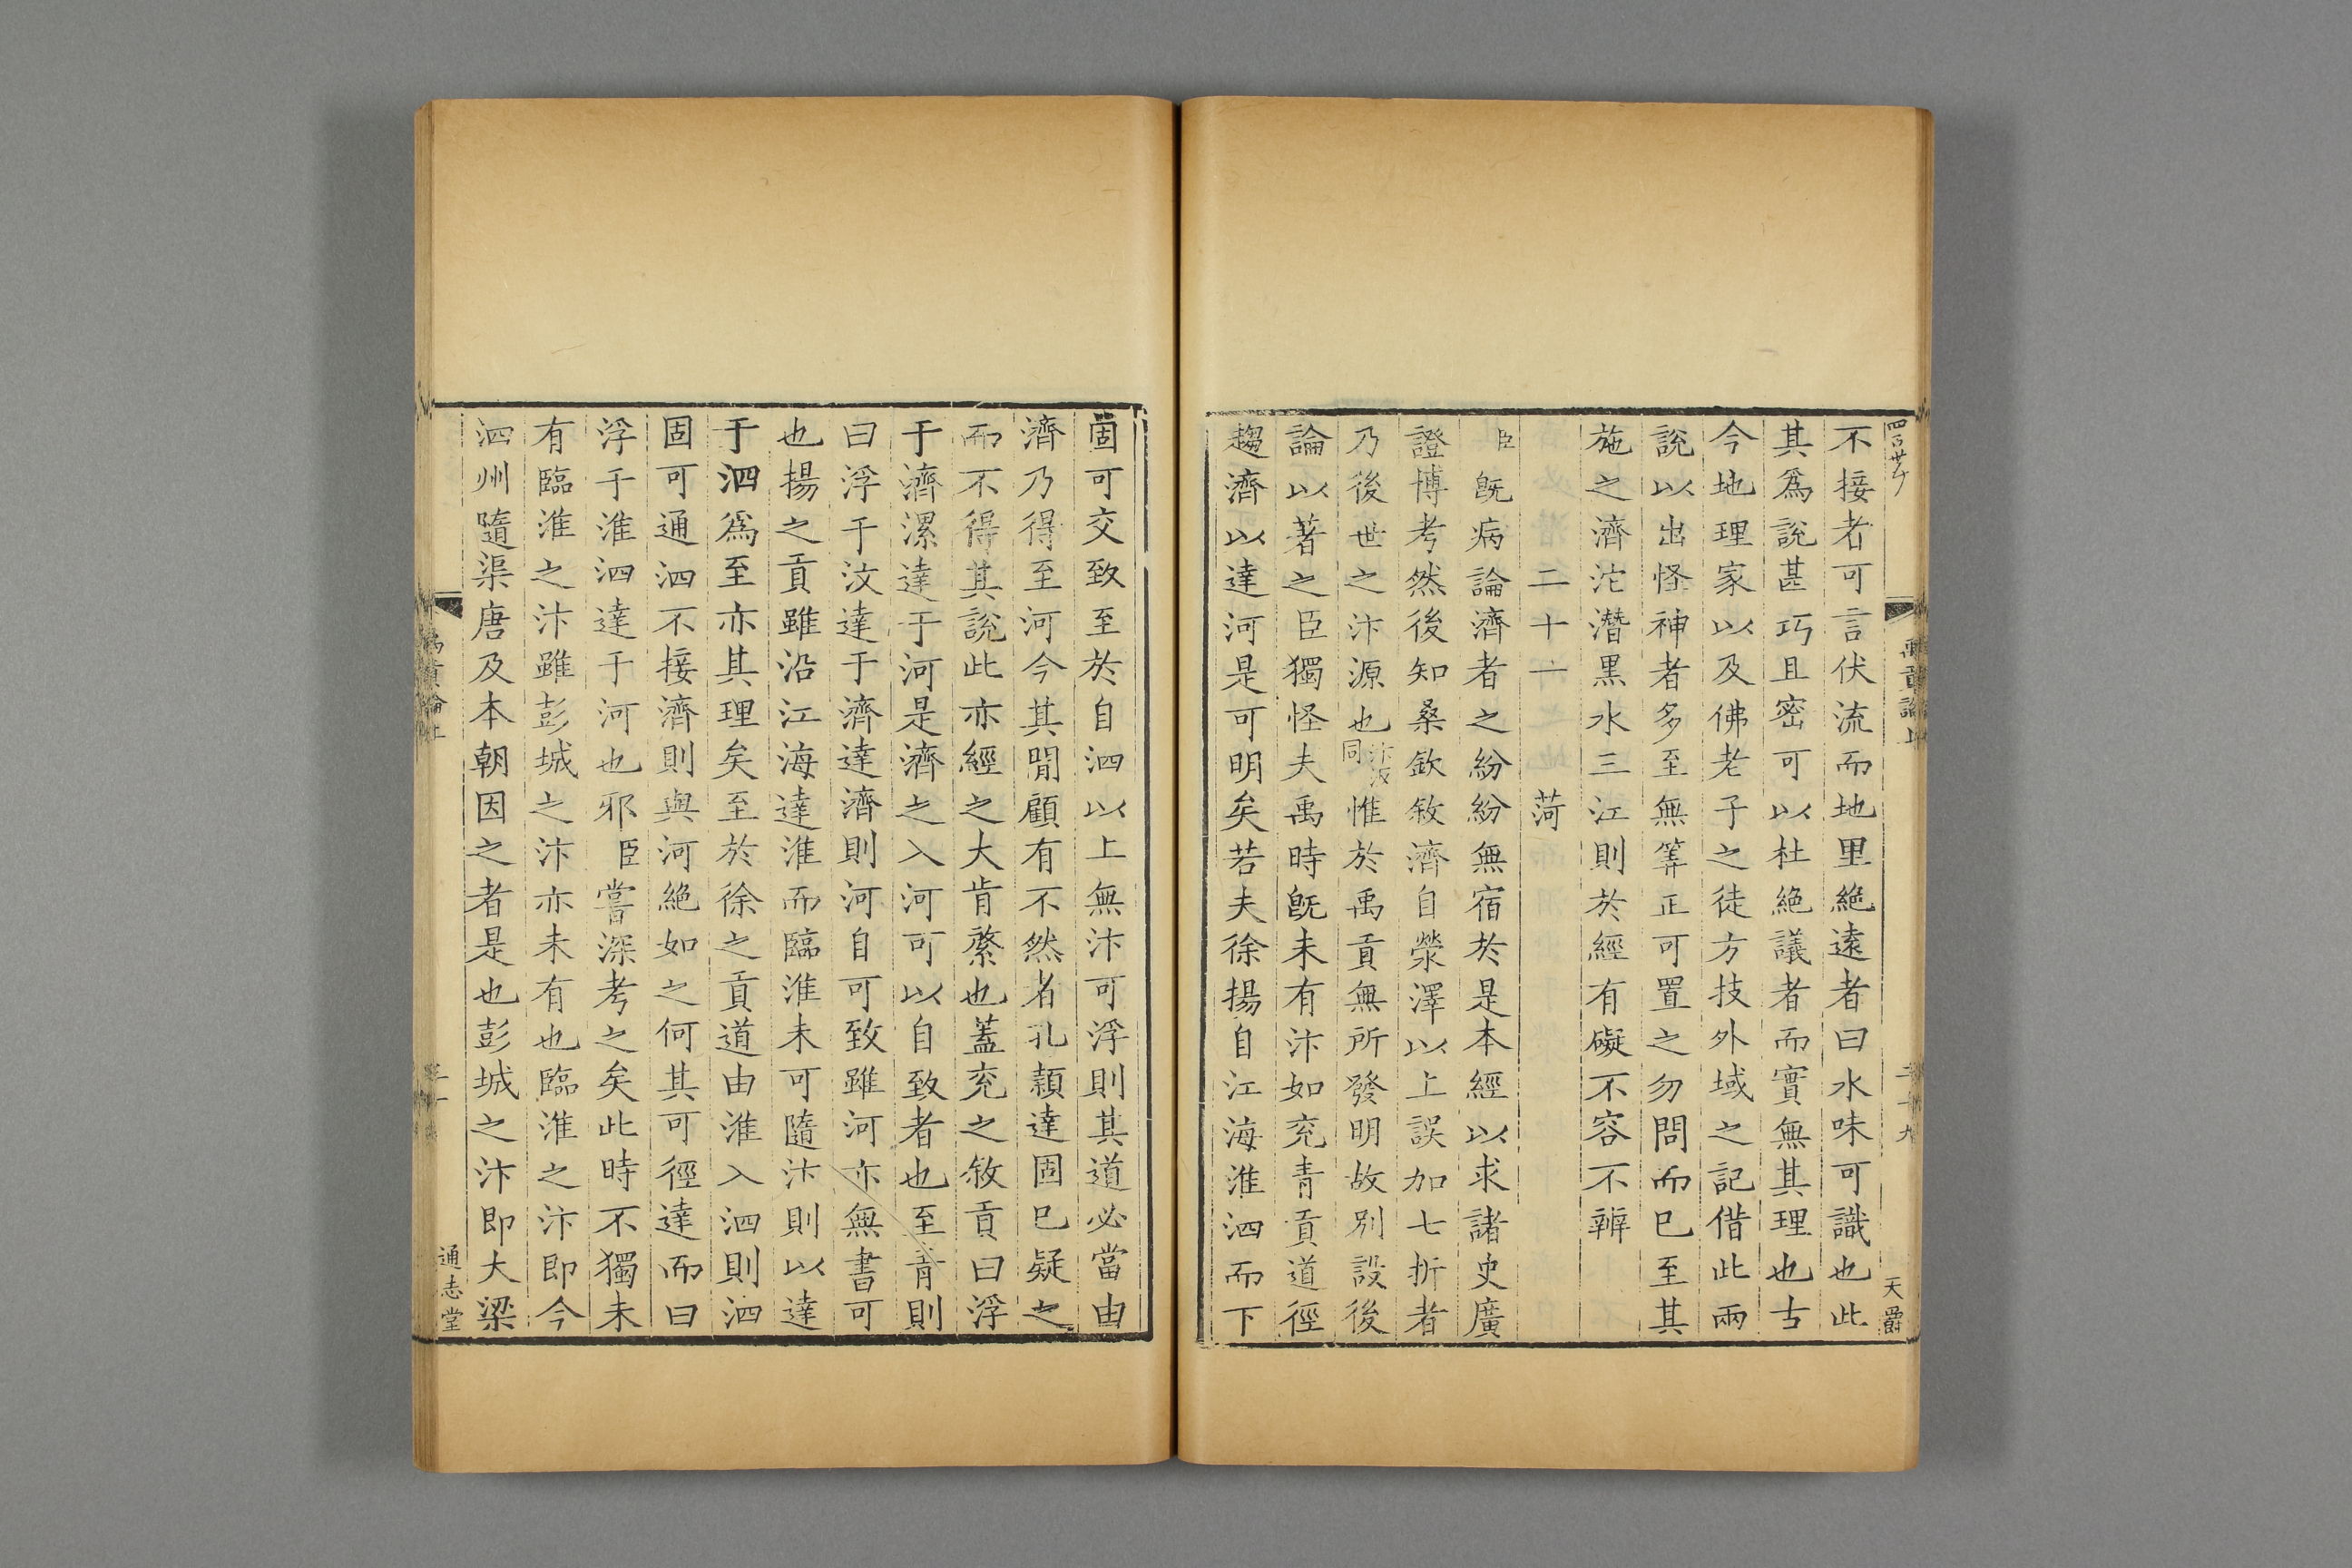 不接者可言伏流而地里絶遠者曰水味可識也此
其爲説甚巧且密可以杜絶議者而實無其理也古
今地理家以及佛老子之徒方技外域之記借此兩
説以出怪神者多至無筭正可置之勿問而巳至其
施之濟沱潛黑水三江則於經有礙不容不辨
二十一 菏
臣既病論濟者之紛紛無宿於是本經以求諸史廣
證博考然後知桑欽敘濟自滎澤以上誤加七折者
乃後世之汴源也汴汳同惟於禹貢無所發明故别設後
論以著之臣獨怪夫禹時既未有汴如兖青貢道徑
趨濟以達河是可明矣若夫徐揚自江海淮泗而下
固可交致至於自泗以上無汴可浮則其道必當由
濟乃得至河今其間顧有不然者孔穎達固巳疑之
而不得其説此亦經之大肯綮也蓋兖之敘貢曰浮
于濟漯達于河是濟之入河可以自致者也至青則
曰浮于汶達于濟達濟則河自可致雖河亦無書可
也揚之貢雖沿江海達淮而臨淮未可隨汴則以達
于泗爲至亦其理矣至於徐之貢道由淮入泗則泗
固可通泗不接濟則與河絶如之何其可徑達而曰
浮于淮泗達于河也邪臣嘗深考之矣此時不獨未
有臨淮之汴雖彭城之汴亦未有也臨淮之汴即今
泗州隨渠唐及本朝因之者是也彭城之汴即大梁
禹貢論上
二十九
天爵
通志堂